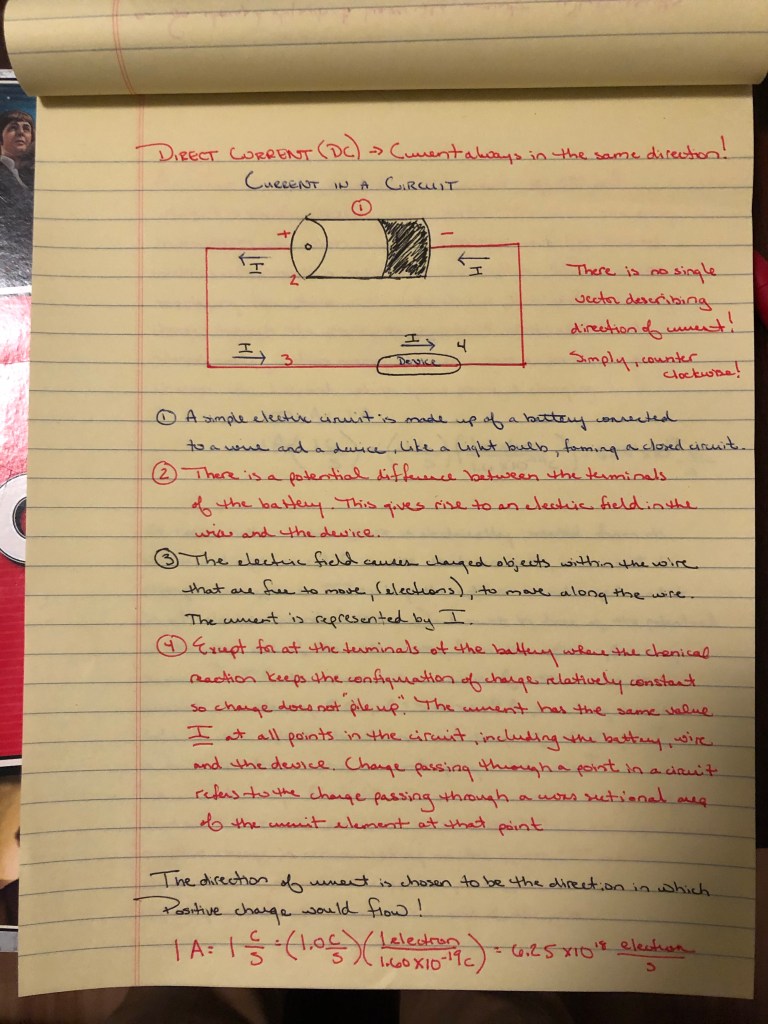 DIRECT CURRENT (DC) → Current always in the same direction!
CURRENT IN A CIRCUIT
①
+
−
I
I
2
There is no single
vector describing
direction of current!
Simply, counter
clockwise!
I
3
I
4
Device
① A simple electric circuit is made up of a battery connected
to a wire and a device, like a light bulb, forming a closed circuit.
② There is a potential difference between the terminals
of the battery. This gives rise to an electric field in the
wire and the device.
③ The electric field causes charged objects within the wire
that are free to move, (electrons), to move along the wire.
The current is represented by I.
④ Except for at the terminals of the battery where the chemical
reaction keeps the configuration of charge relatively constant
so charge does not "pile up". The current has the same value
I at all points in the circuit, including the battery, wire
and the device. Charge passing through a point in a circuit
refers to the charge passing through a cross sectional area
of the circuit element at that point
The direction of current is chosen to be the direction in which
Positive charge would flow!
1 A = 1 C/S = (1.0 C/S) (1 electron / 1.60 x 10⁻¹⁹ C) = 6.25 x 10¹⁸ electron/s